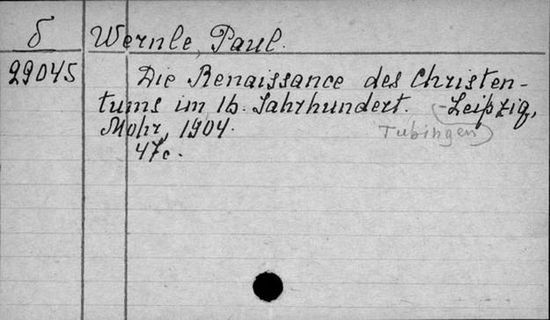 б Wernle, Paul.
29045 Die Renaissance des Christen-
tums im 16. Jahrhundert. - Leipzig,
Mohr, 1904. Tubingen
47с.